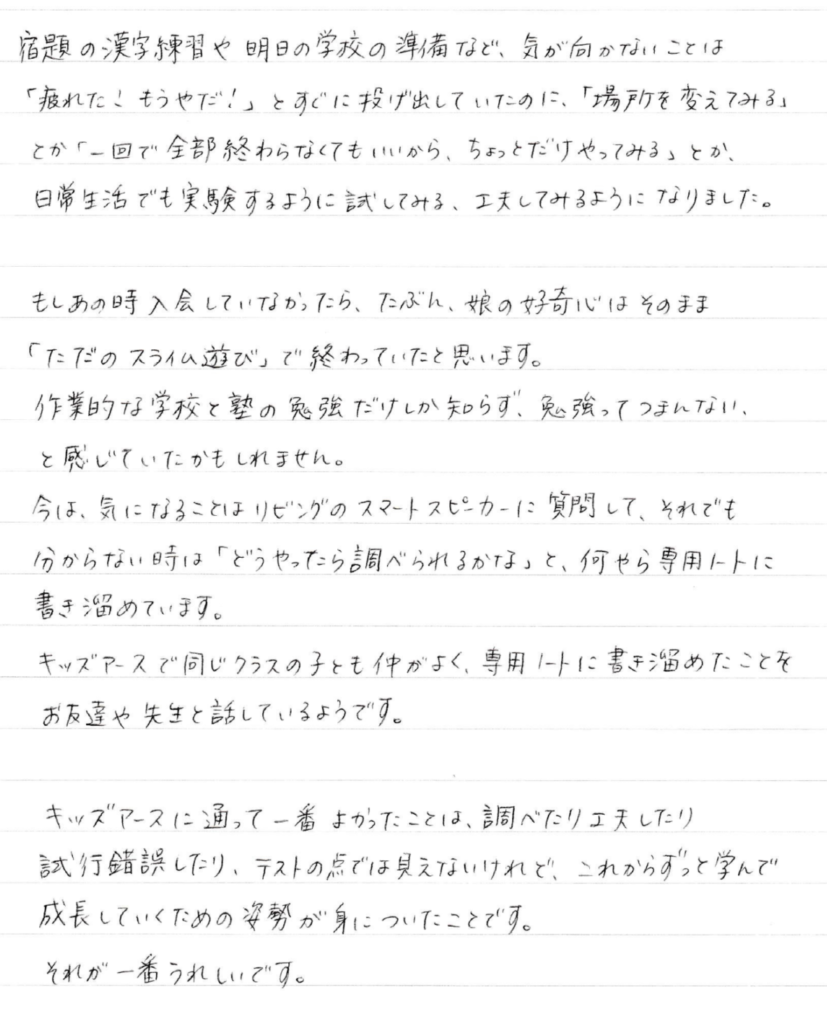 宿題の漢字練習や明日の学校の準備など、気が向かないことは
「疲れた！もうやだ！」とすぐに投げ出していたのに、「場所を変えてみる」
とか「一回で全部終わらなくてもいいから、ちょっとだけやってみる」とか、
日常生活でも実験するように試してみる、工夫してみるようになりました。
もしあの時入会していなかったら、たぶん、娘の好奇心はそのまま
「ただのスライム遊び」で終わっていたと思います。
作業的な学校と塾の勉強だけしか知らず、勉強ってつまんない、
と感じていたかもしれません。
今は、気になることはリビングのスマートスピーカーに質問して、それでも
分からない時は「どうやったら調べられるかな」と、何やら専用ノートに
書き溜めています。
キッズアースで同じクラスの子とも仲がよく、専用ノートに書き溜めたことを
お友達や先生と話しているようです。
キッズアースに通って一番よかったことは、調べたり工夫したり
試行錯誤したり、テストの点では見えないけれど、これからずっと学んで
成長していくための姿勢が身についたことです。
それが一番うれしいです。